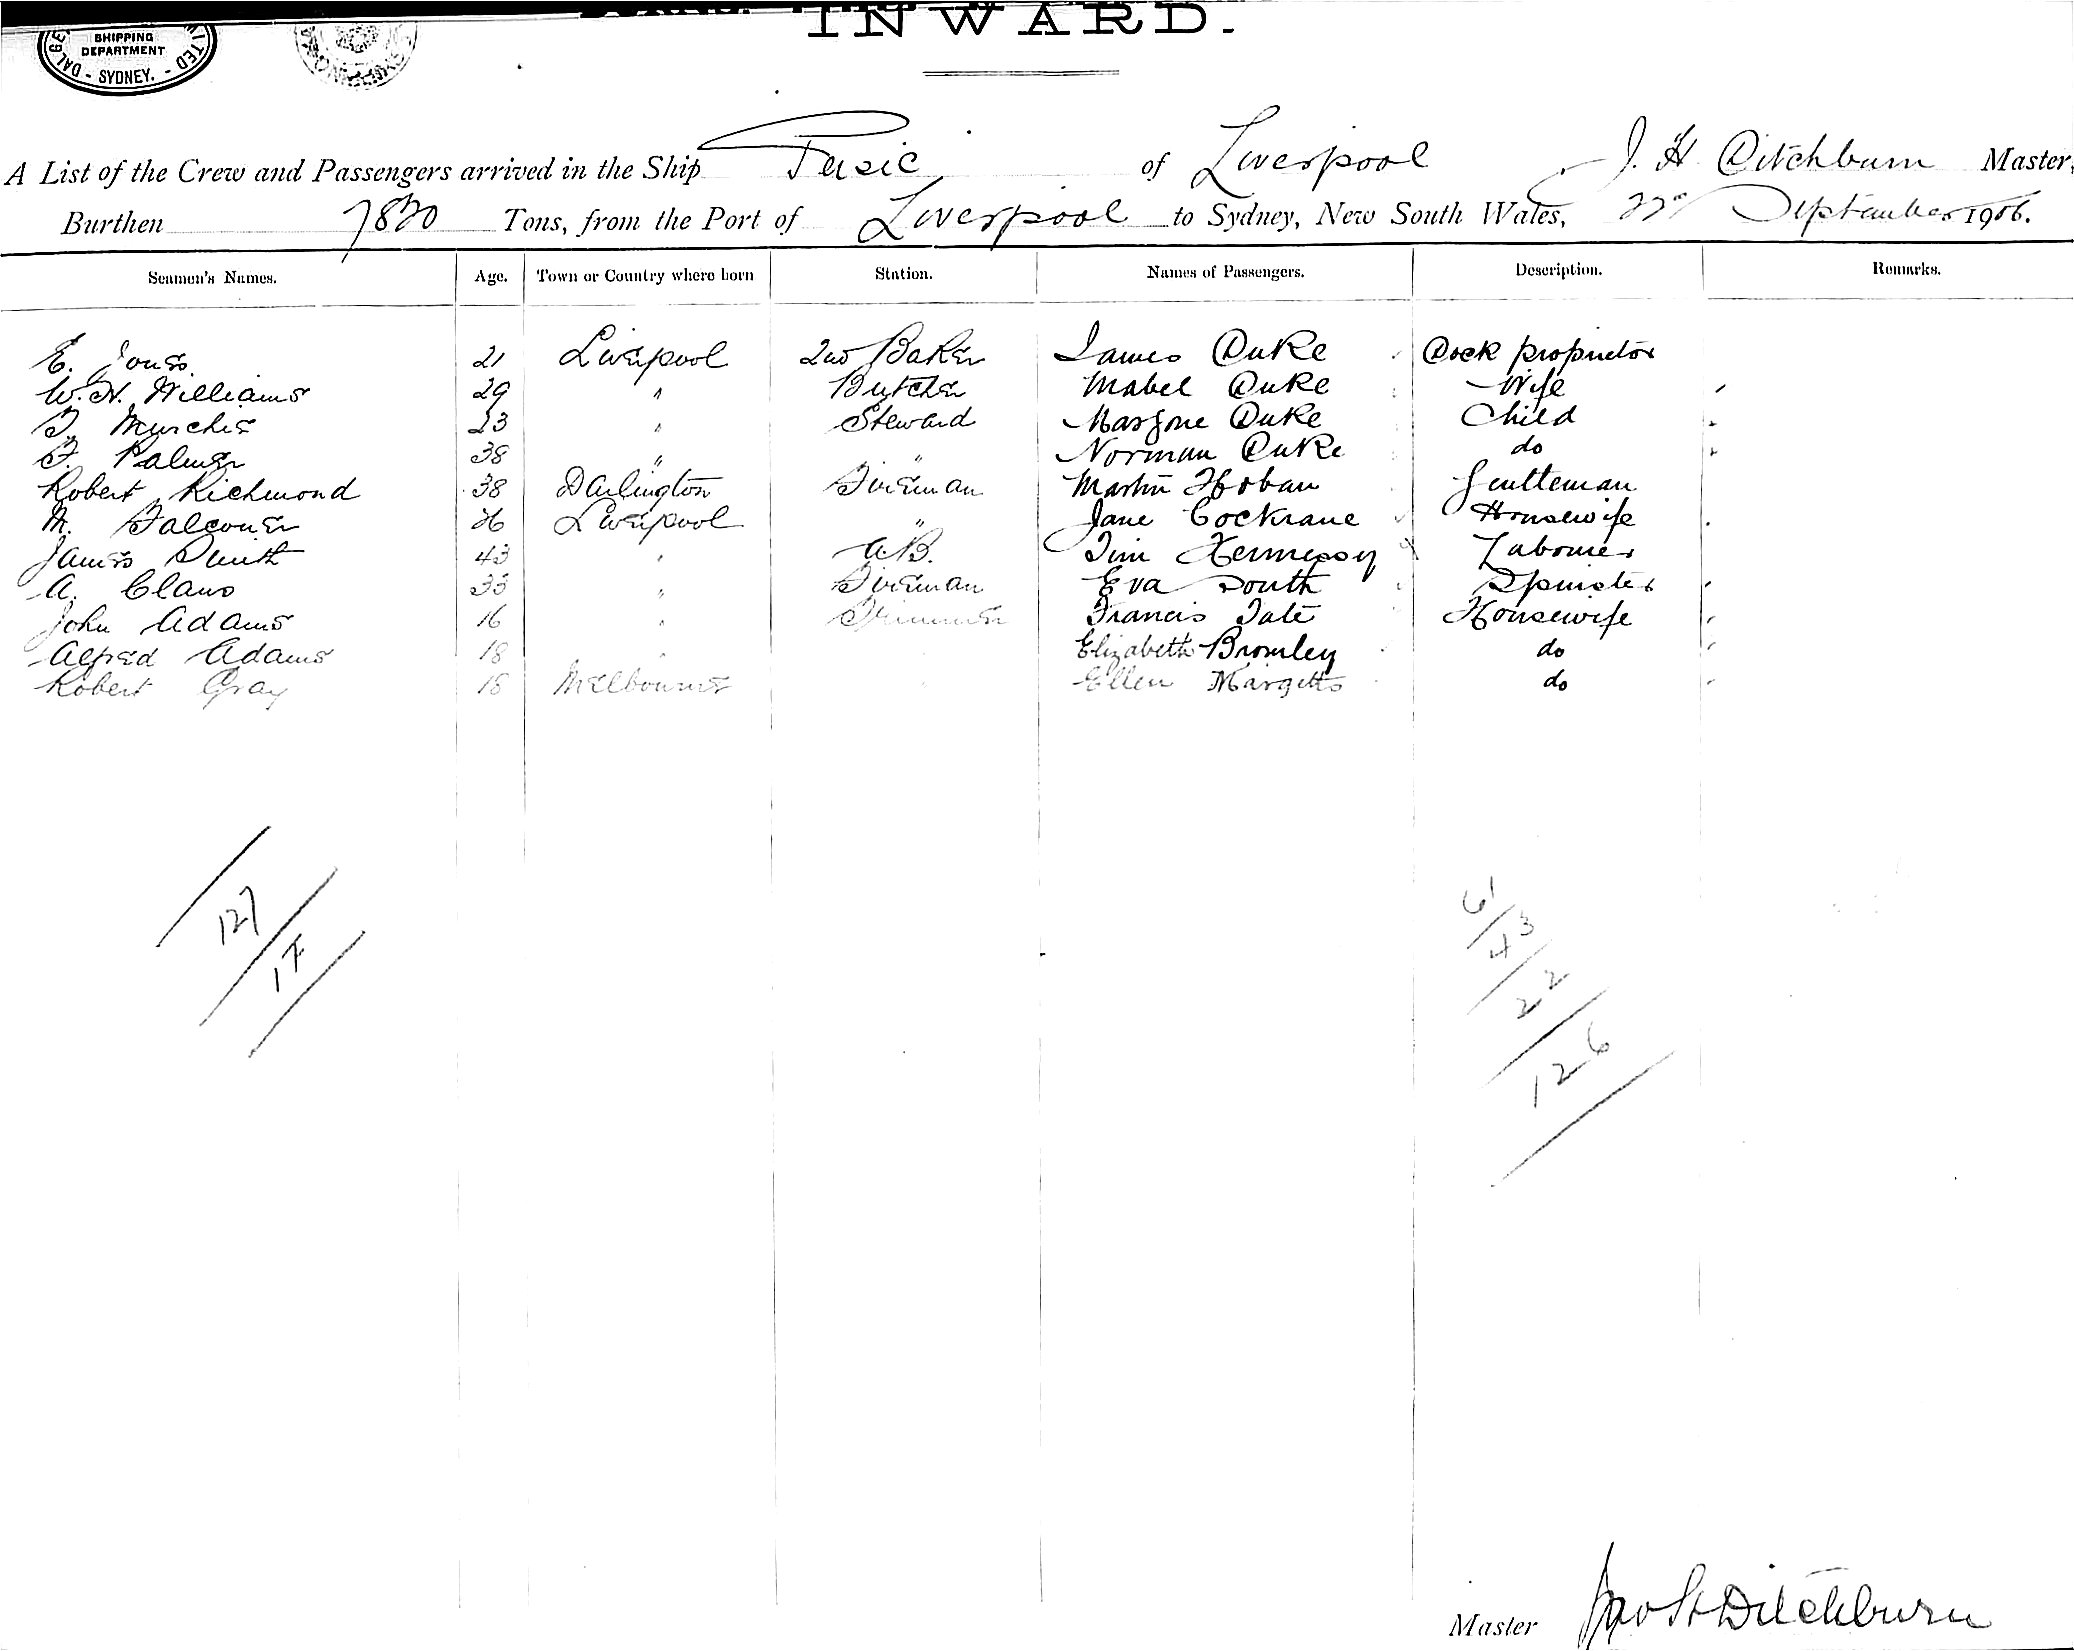 INWARD.
SHIPPING
DEPARTMENT
SYDNEY.
A List of the Crew and Passengers arrived in the Ship Persic of Liverpool J. H. Ditchburn Master,
Burthen Tons, from the Port of Liverpool to Sydney, New South Wales, September 1906.
Seamen's Names. Age. Town or Country where born Station. Names of Passengers. Description. Remarks.
E. Jones. 21 Liverpool 2nd Baker James Duke Dock proprietor
W. H. Williams 29 " Butcher Mabel Duke Wife
Murchie 23 " Steward Marjorie Duke Child
F. Palmer 38 " " Norman Duke do
Robert Richmond 38 Darlington Fireman Martin Hoban Gentleman
M. Falconer 26 Liverpool " Jane Cockrane Housewife
James Smith 43 " A.B. Tim Hennessy Labourer
A. Claus 33 " Fireman Eva South Spinster
John Adams 16 " Trimmer Francis Tate Housewife
Alfred Adams 18 " Elizabeth Bromley do
Robert Gray 18 Melbourne Ellen Margetts do
127
17
61
43
22
126
Master Jno H Ditchburn